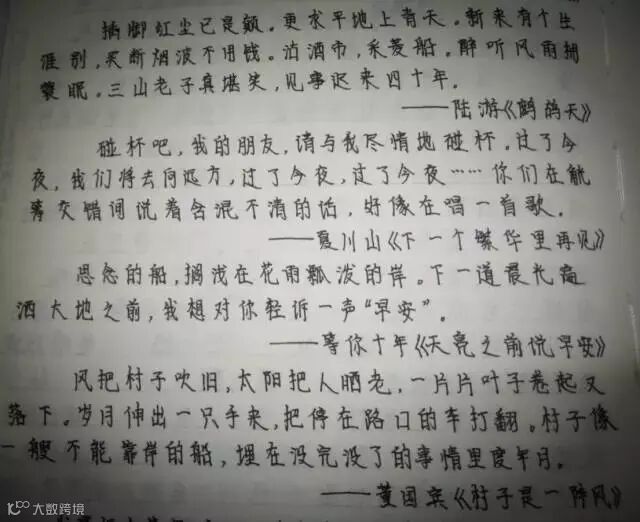 插脚红尘已是颠。更求平地上青天。新来有个生
涯别,买断烟波不用钱。沽酒市,采菱船。醉听风雨拥
蓑眠。三山老子真堪笑,见事迟来四十年。
——陆游《鹧鸪天》
碰杯吧,我的朋友,请与我尽情地碰杯。过了今
夜,我们将去向远方,过了今夜,过了今夜……你们在觥
筹交错间说着含混不清的话,好像在唱一首歌。
——夏川山《下一个繁华里再见》
思念的船,搁浅在花雨瓢泼的岸。下一道晨光痛
洒大地之前,我想对你轻诉一声“早安”。
——等你十年《天亮之前说早安》
风把村子吹旧,太阳把人晒老,一片片叶子卷起又
落下。岁月伸出一只手来,把停在路口的车打翻。村子像
一艘不能靠岸的船,埋在没完没了的事情里度年月。
——董国宾《村子是一阵风》
大数跨境